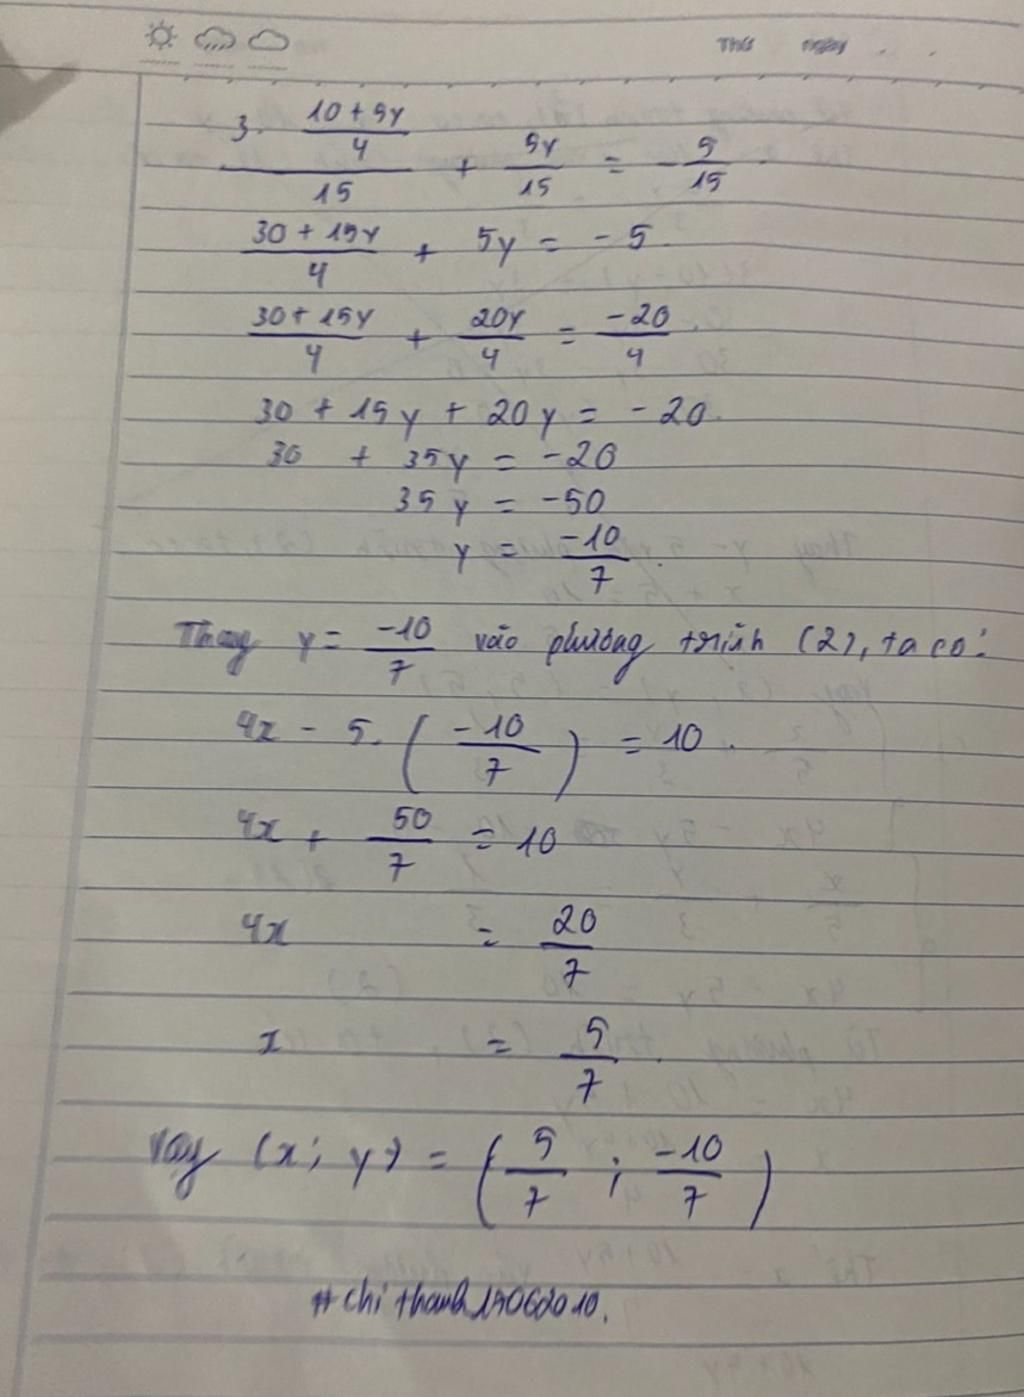 Thứ ngày . .
3. (10 + 5y)/4 / 15 + 5y/15 = - 5/15 .
(30 + 15y)/4 + 5y = - 5
(30 + 15y)/4 + 20y/4 = -20/4
30 + 15y + 20y = - 20
30 + 35y = -20
35y = -50
y = -10/7 .
Thay y = -10/7 vào phương trình (2), ta có:
4x - 5. (-10/7) = 10 .
4x + 50/7 = 10
4x = 20/7
x = 5/7 .
Vậy (x; y) = (5/7 ; -10/7)
#chi thanh19062010.